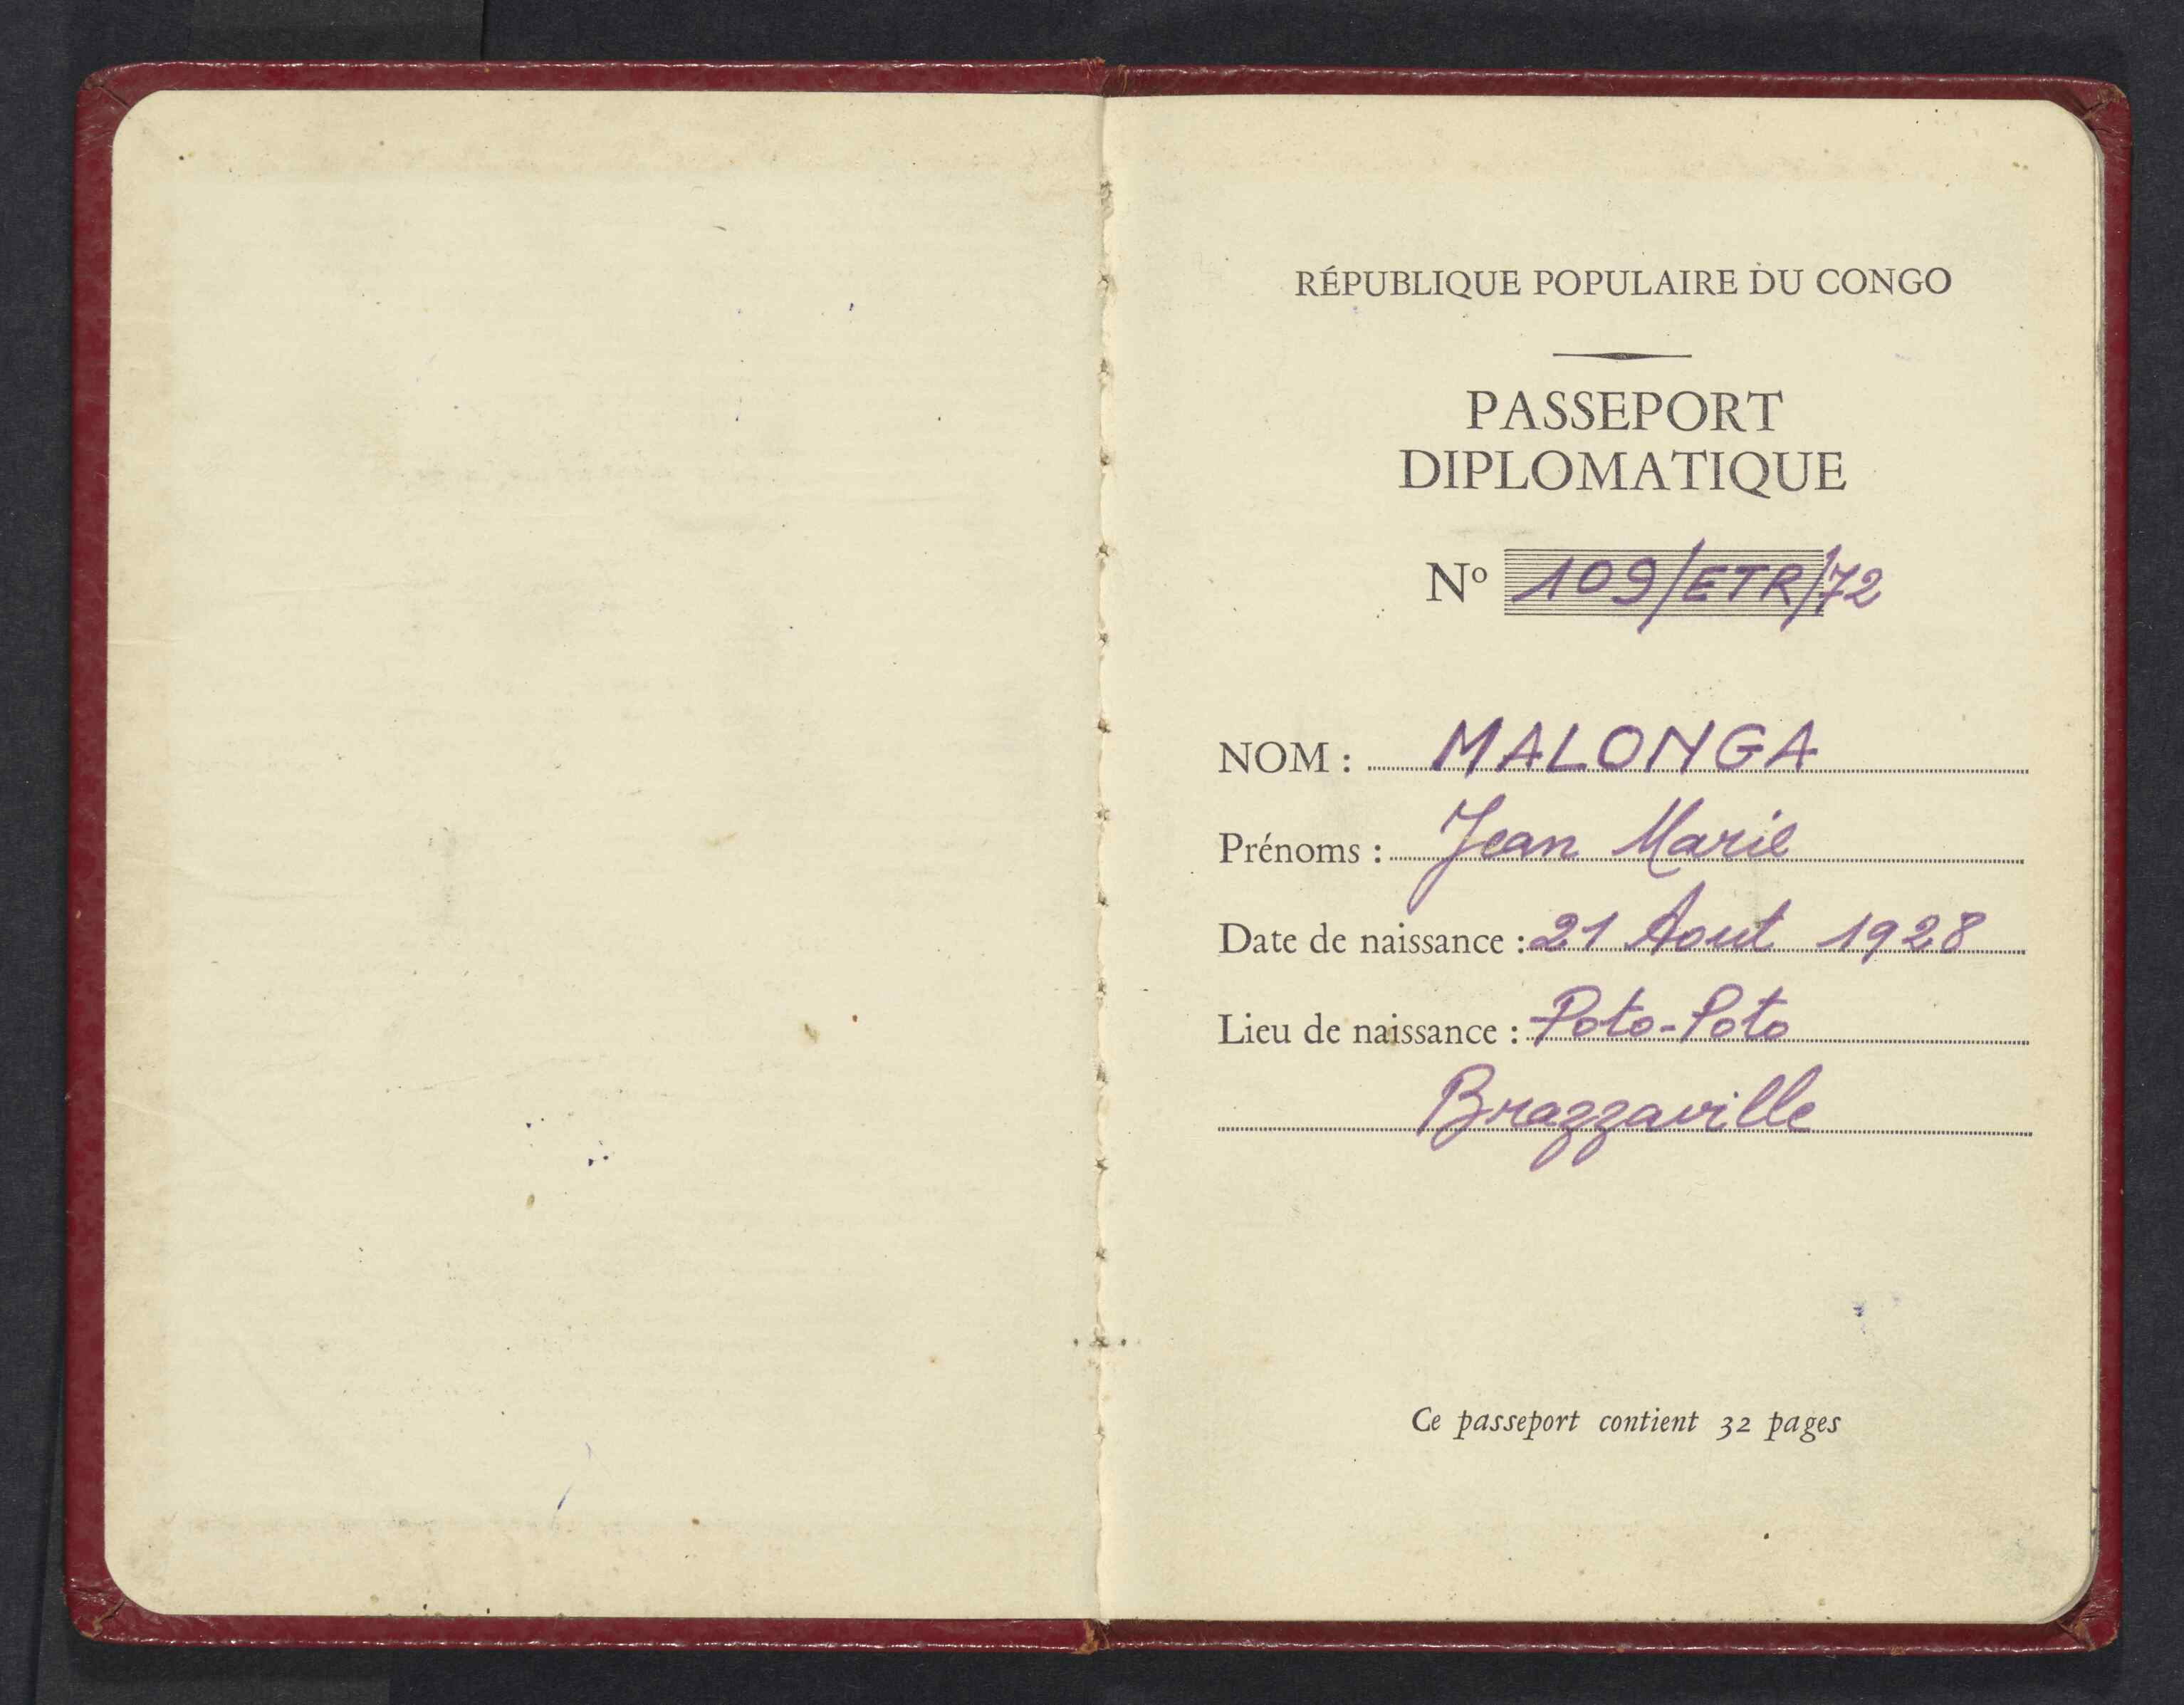 RÉPUBLIQUE POPULAIRE DU CONGO
PASSEPORT
DIPLOMATIQUE
Nº 109/ETR/72
NOM : MALONGA
Prénoms : Jean Marie
Date de naissance : 21 Aout 1928
Lieu de naissance : Poto-Poto
Brazzaville
Ce passeport contient 32 pages